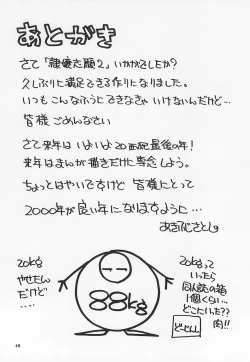 あとがき
さて「雛優志願2」いかがでしたか?
久しぶりに満足できる作りになりました。
いつもこんなふうにできなきゃいけないんだけど…
皆様ごめんなさい
さて来年はいよいよ20世紀最後の年!
来年はまんが描きだけに専念しよう。
ちょっとはやいですけど皆様にとって
2000年が良い年になりますように…
あきふじさとし
20kg
やせたん
だけど…
88kg
20kgって
いったら
同人誌の箱
1個くらい…
どこいった??
肉!!
どーせん